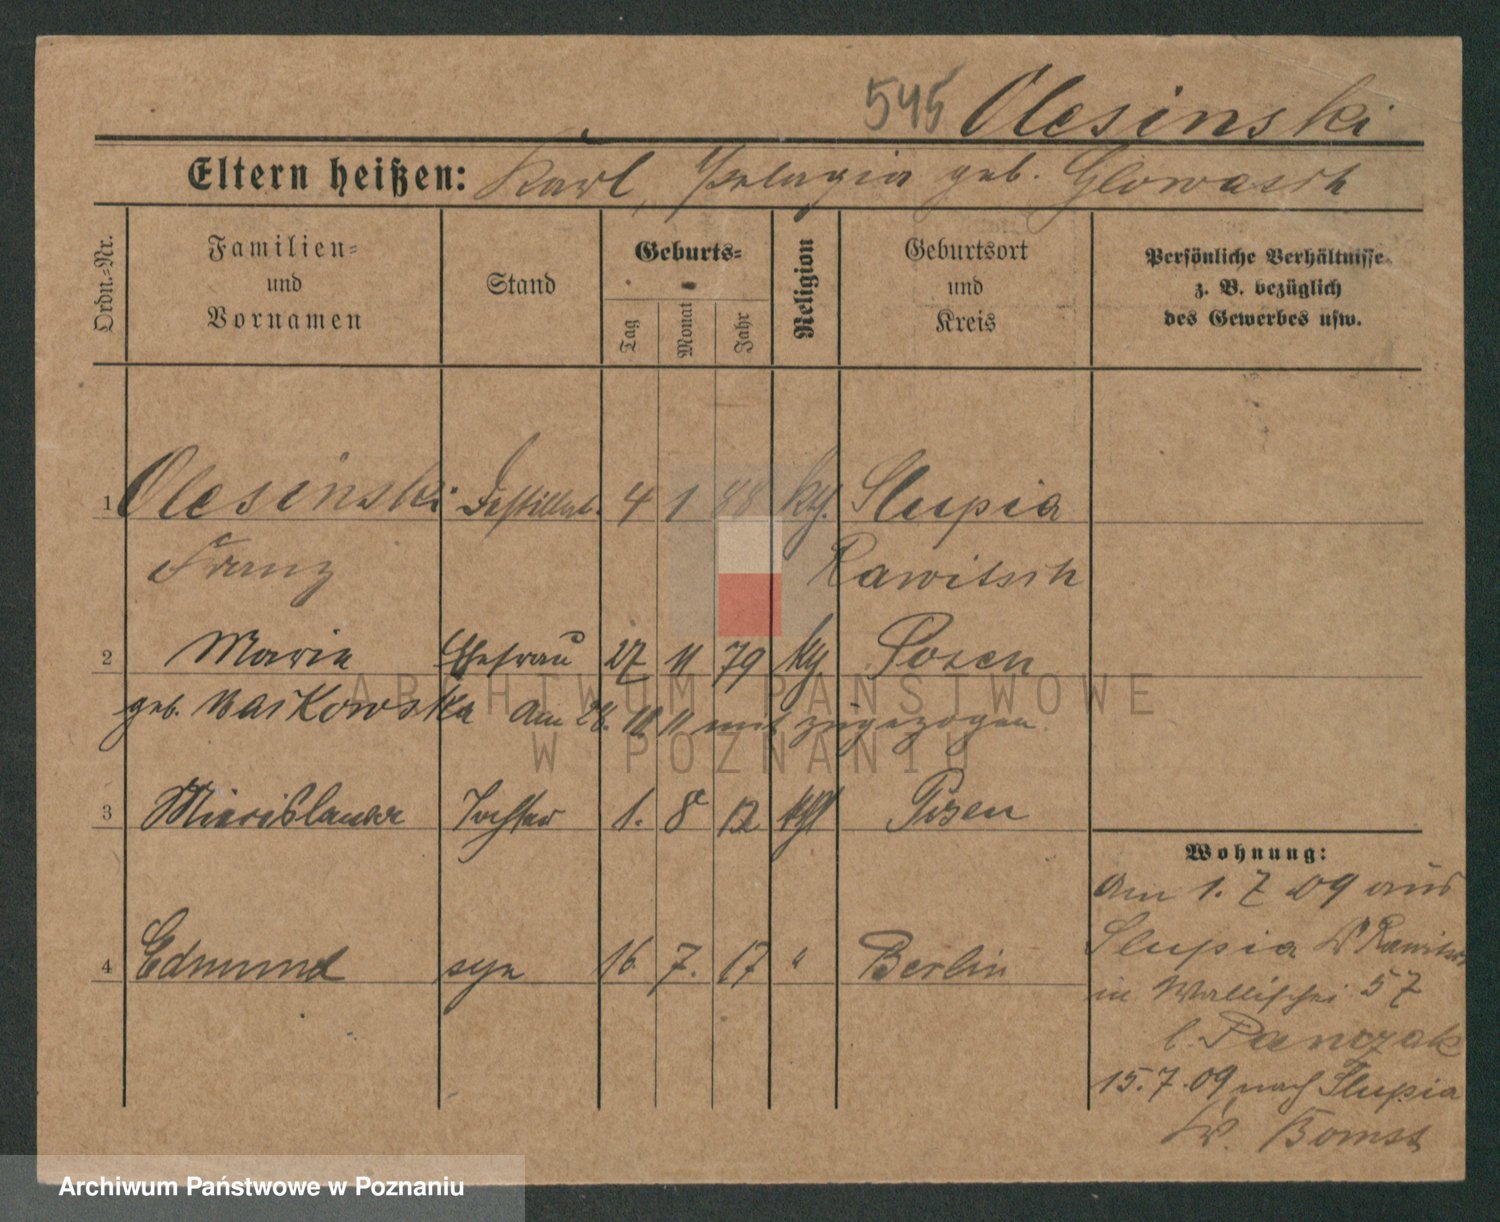 545 Olesinski
Eltern heißen: Karl, Pelagia geb. Glowasch
Ordn.-Nr.
Familien-
und
Vornamen
Stand
Geburts-
Tag
Monat
Jahr
Religion
Geburtsort
und
Kreis
Persönliche Verhältnisse
z. B. bezüglich
des Gewerbes usw.
1 Olesinski Destillat. 4 1 88 kg. Slupia
Franz Rawitsch
2 Marie Ehefrau 27 11 79 kg Posen
geb. Waskowska am 28. 10. 11 mit zugezogen
3 Miecislawa Tochter 1. 8 12 kgl Posen
4 Edmund syn 16 7. 17 " Berlin
Wohnung:
Am 1. 7 09 aus
Slupia Kr Rawitsch
in Wallischei 57
b. Panczak
15. 7. 09 nach Slupia
Kr. Bomst
ARCHIWUM PAŃSTWOWE
W POZNANIU
Archiwum Państwowe w Poznaniu